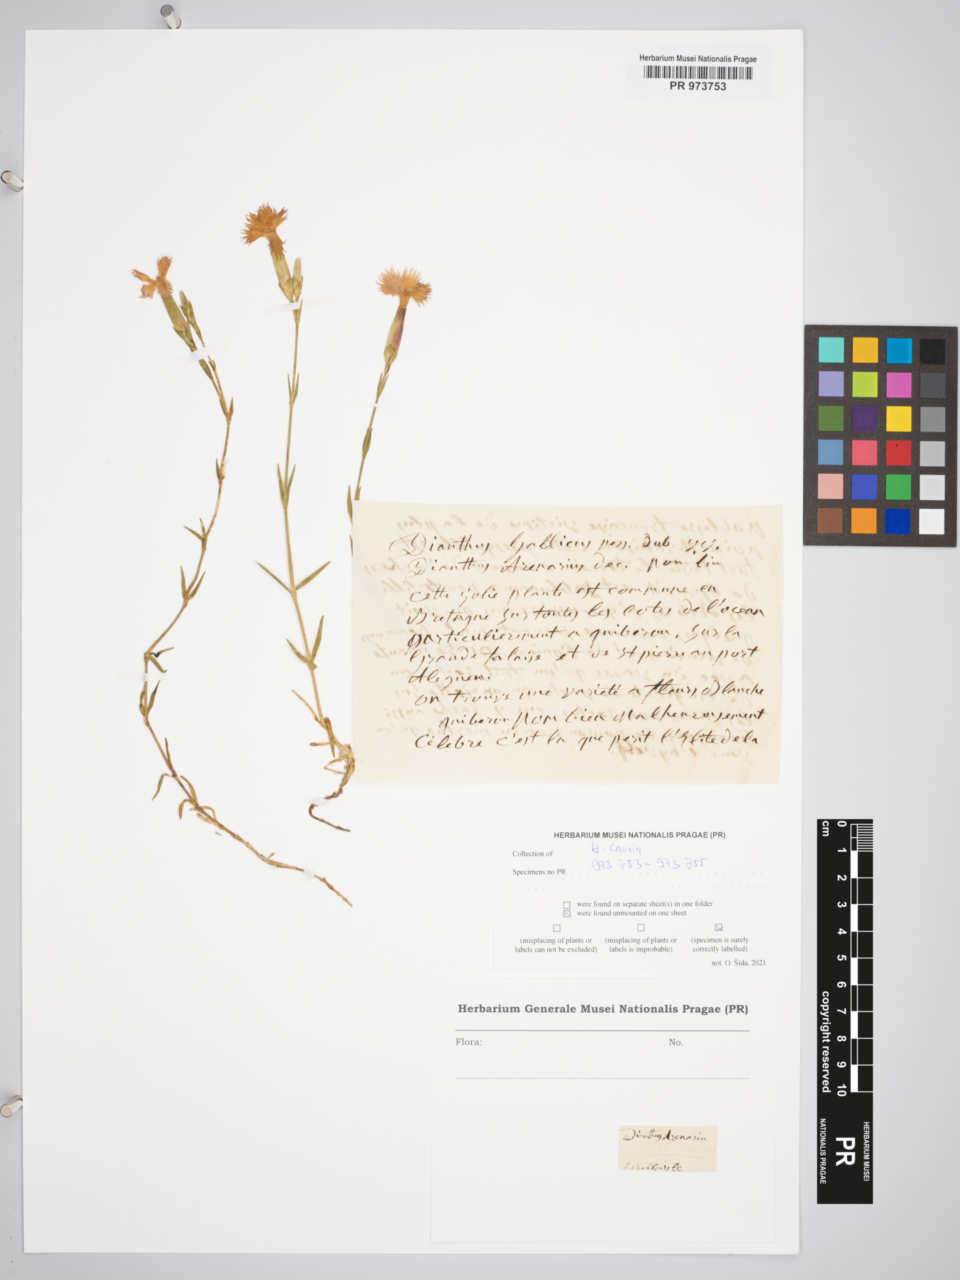 Herbarium Musei Nationalis Pragae
PR 973753
Dianthus Gallicus pers. dub
Dianthus Arenarius dec. non lin
cette jolie plante est commune en
Bretagne sur toutes les cotes de l'ocean
particulierement a quiberon, sur la
Grande falaise et de st pierre au port
on trouve une varieté a fleurs Blanche
quiberon nom bien Malheureusement
Célebre c'est la que perit l'Elite de la
HERBARIUM MUSEI NATIONALIS PRAGAE (PR)
Collection of:
Specimens no PR 973 753 - 973 755
were found on separate sheet(s) in one folder
were found unmounted on one sheet
(misplacing of plants or labels can not be excluded)
(misplacing of plants or labels is improbable)
(specimen is surely correctly labelled)
not. O. Šída, 2021
Herbarium Generale Musei Nationalis Pragae (PR)
Flora: No.
Dianthus Arenarius
0 1 2 3 4 5 6 7 8 9 10
cm
copyright reserved
HERBARIUM MUSEI
NATIONALIS PRAGAE
PR